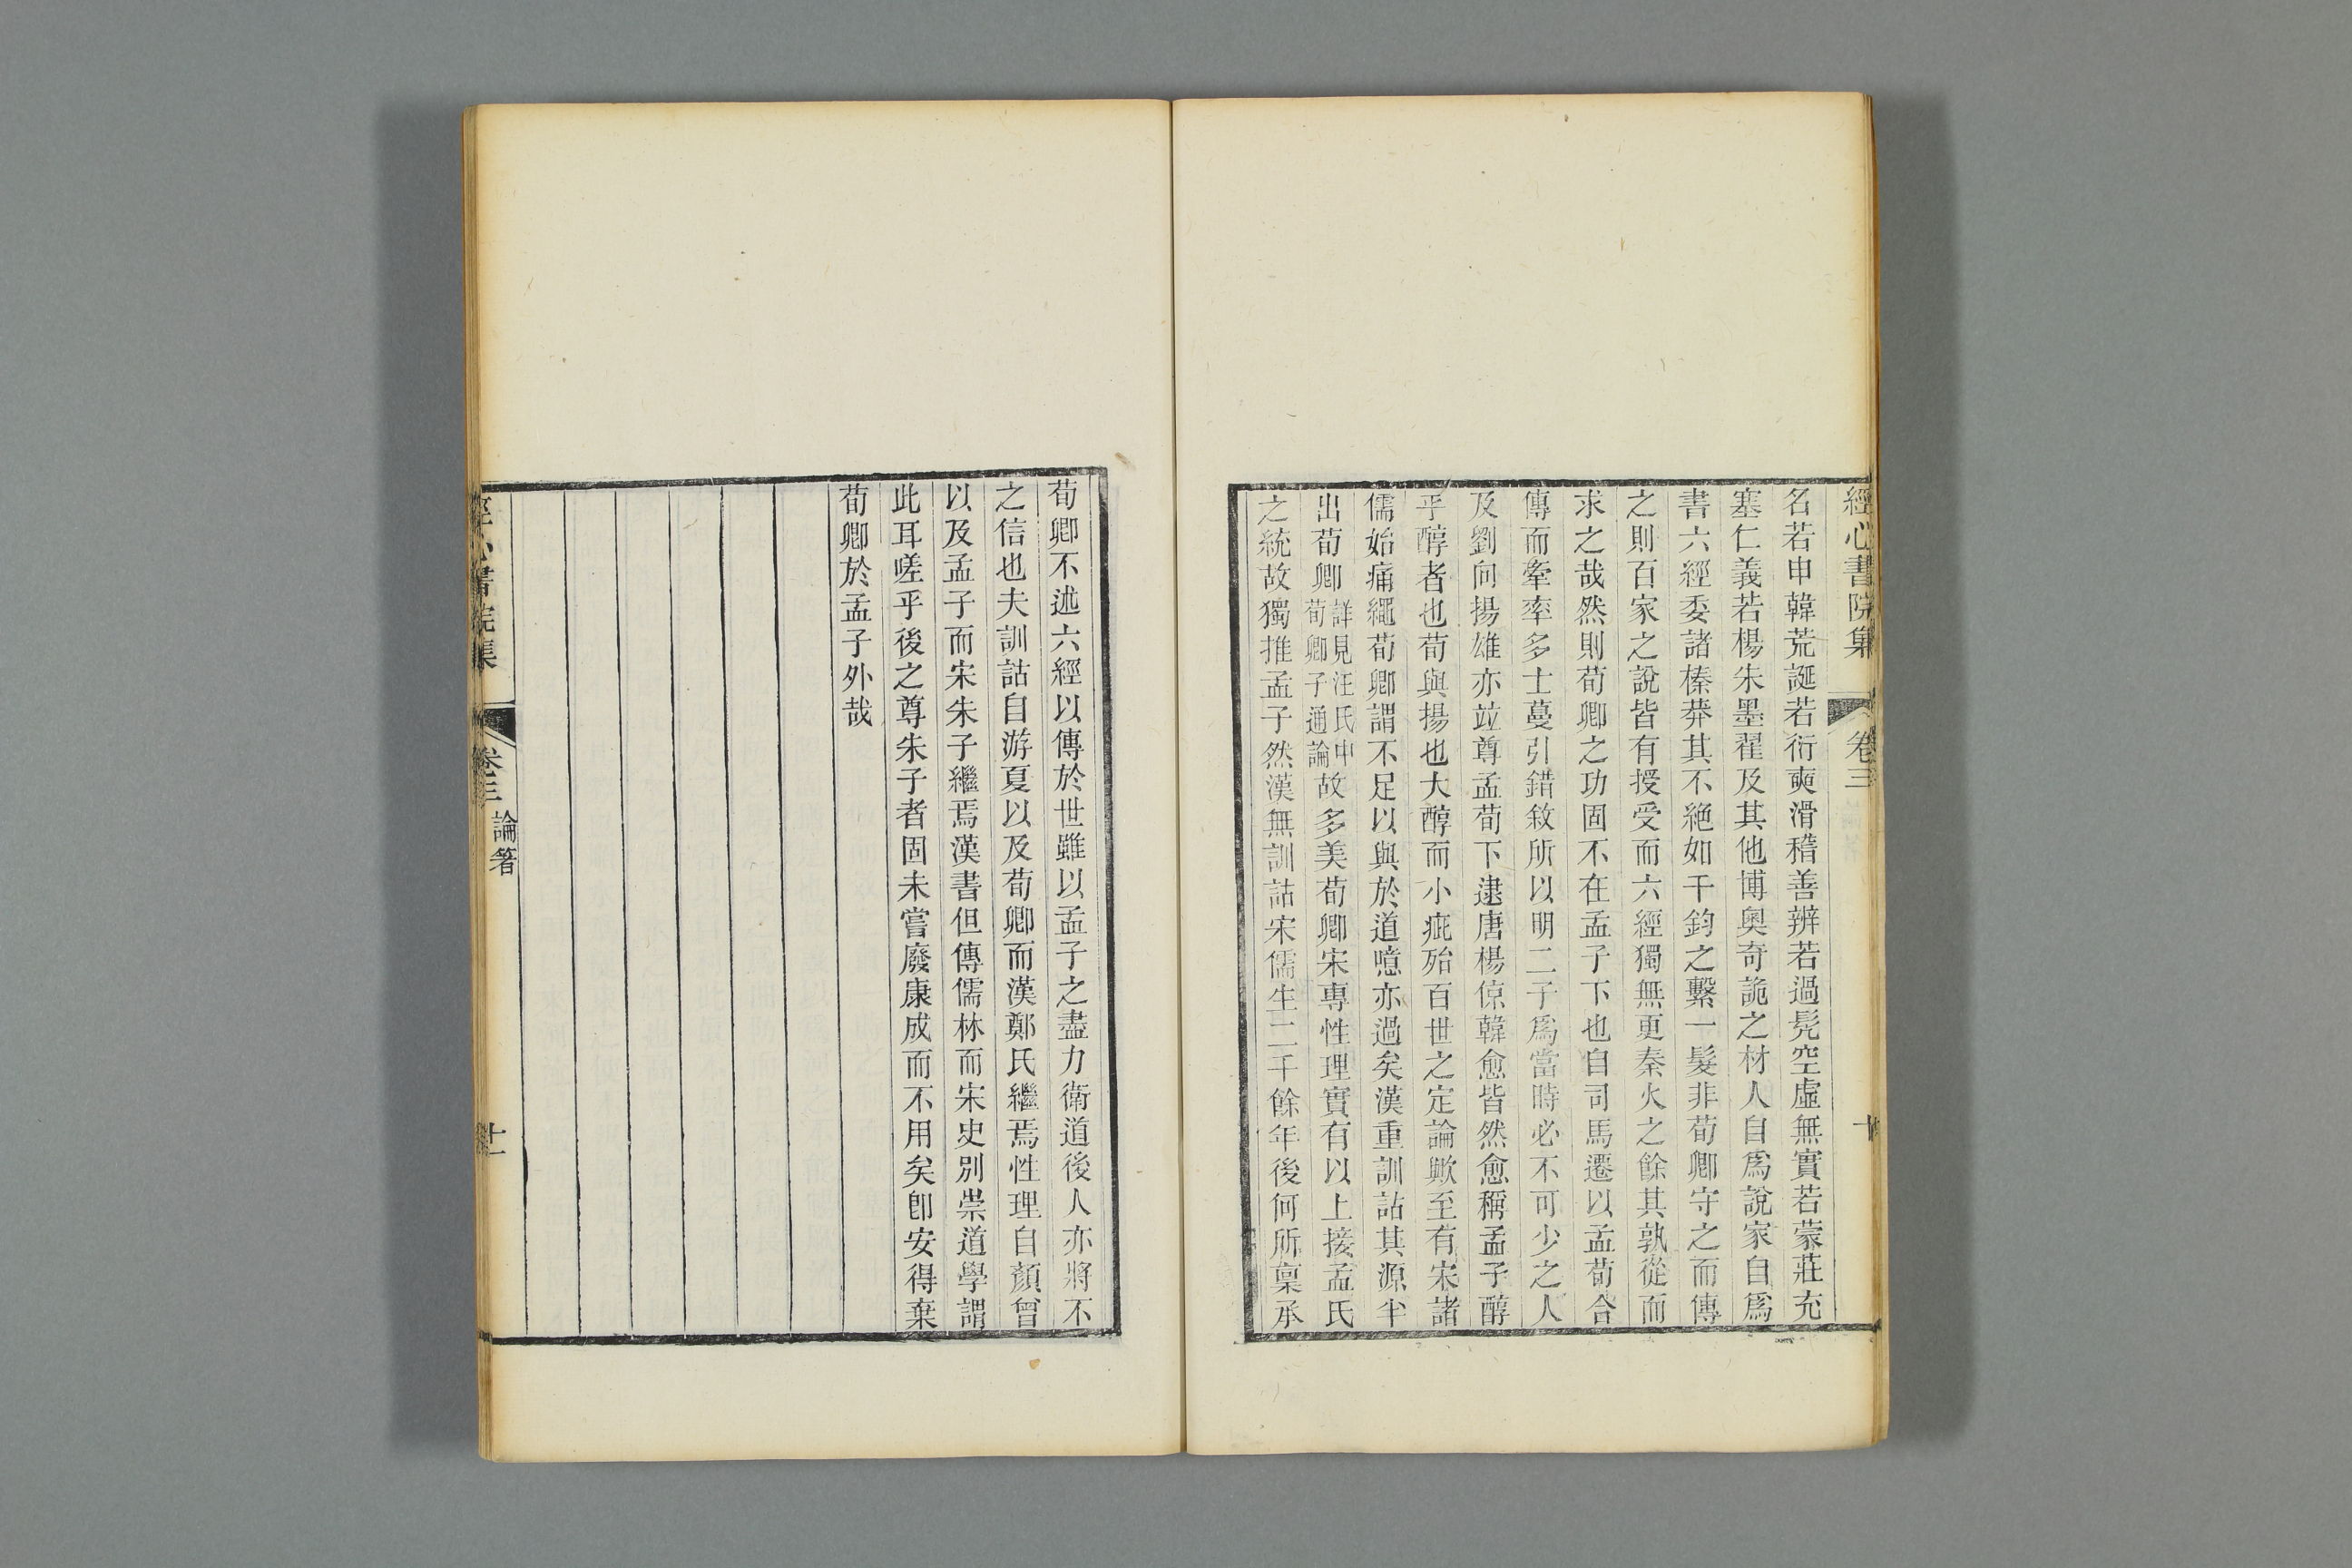 經心書院集
卷三
十
名若申韓荒誕若衍奭滑稽善辨若過髡空虛無實若蒙莊充
塞仁義若楊朱墨翟及其他博奧奇詭之材人自爲說家自爲
書六經委諸榛莽其不絕如千鈞之繫一髮非荀卿守之而傳
之則百家之說皆有授受而六經獨無更秦火之餘其孰從而
求之哉然則荀卿之功固不在孟子下也自司馬遷以孟荀合
傳而牽率多士蔓引錯敘所以明二子爲當時必不可少之人
及劉向揚雄亦竝尊孟荀下逮唐楊倞韓愈皆然愈稱孟子醇
乎醇者也荀與揚也大醇而小疵殆百世之定論歟至有宋諸
儒始痛繩荀卿謂不足以與於道噫亦過矣漢重訓詁其源半
出荀卿詳見汪氏中荀卿子通論故多美荀卿宋專性理實有以上接孟氏
之統故獨推孟子然漢無訓詁宋儒生二千餘年後何所稟承
荀卿不述六經以傳於世雖以孟子之盡力衛道後人亦將不
之信也夫訓詁自游夏以及荀卿而漢鄭氏繼焉性理自顏曾
以及孟子而宋朱子繼焉漢書但傳儒林而宋史別崇道學謂
此耳嗟乎後之尊朱子者固未嘗廢康成而不用矣卽安得棄
荀卿於孟子外哉
經心書院集
卷三
論箸
十一